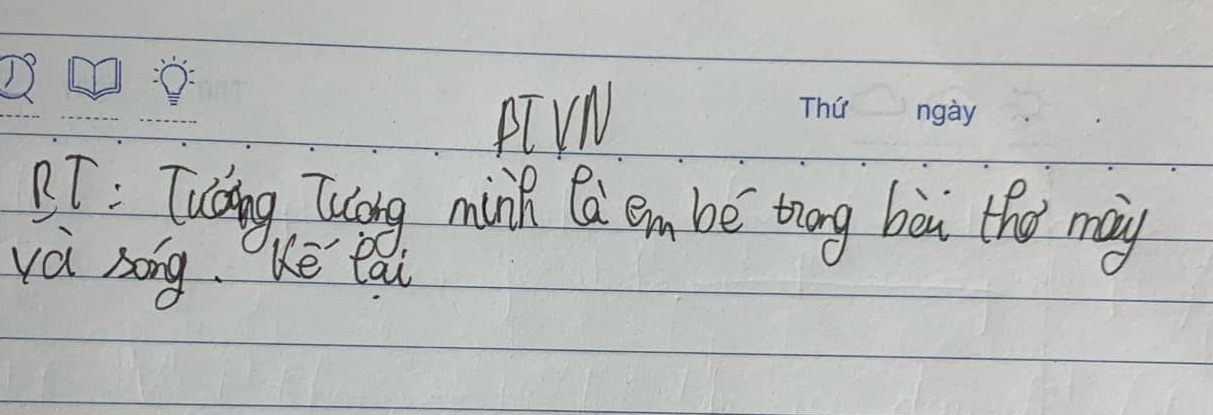 Thứ ngày
BTVN
BT: Tưởng Tượng mình là em bé trong bài thơ mây
và sóng. Kể lại